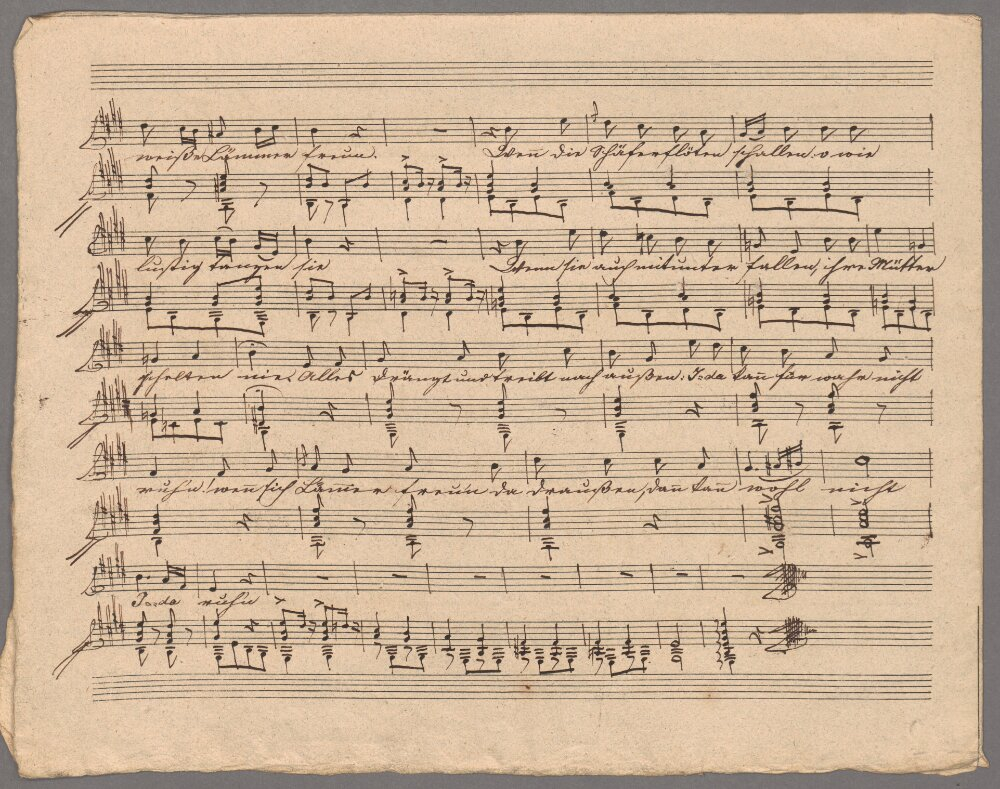 weiße Lämmer freun. Wen̄ die Schäferflöten schallen o wie
lustig tanzen sie Wenn sie auch mitunter fallen, ihre Mütter
schelten nie. Alles drängt und treibt nach außen: Ida kan̄ für wahr nicht
ruhn! wen̄ sich Läm̄er freun da draußen, dan̄ kan̄ wohl nicht
Ida ruhn